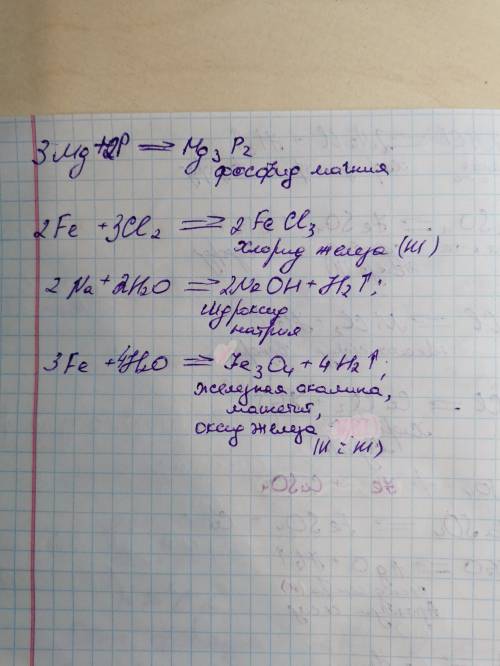 3Mg + 2P = Mg₃P₂
фосфид магния
2Fe + 3Cl₂ = 2FeCl₃
хлорид железа (III)
2Na + 2H₂O = 2NaOH + H₂↑;
гидроксид
натрия
3Fe + 4H₂O = Fe₃O₄ + 4H₂↑;
железная окалина,
магнетит,
оксид железа
(II и III)
Fe + CuSO₄